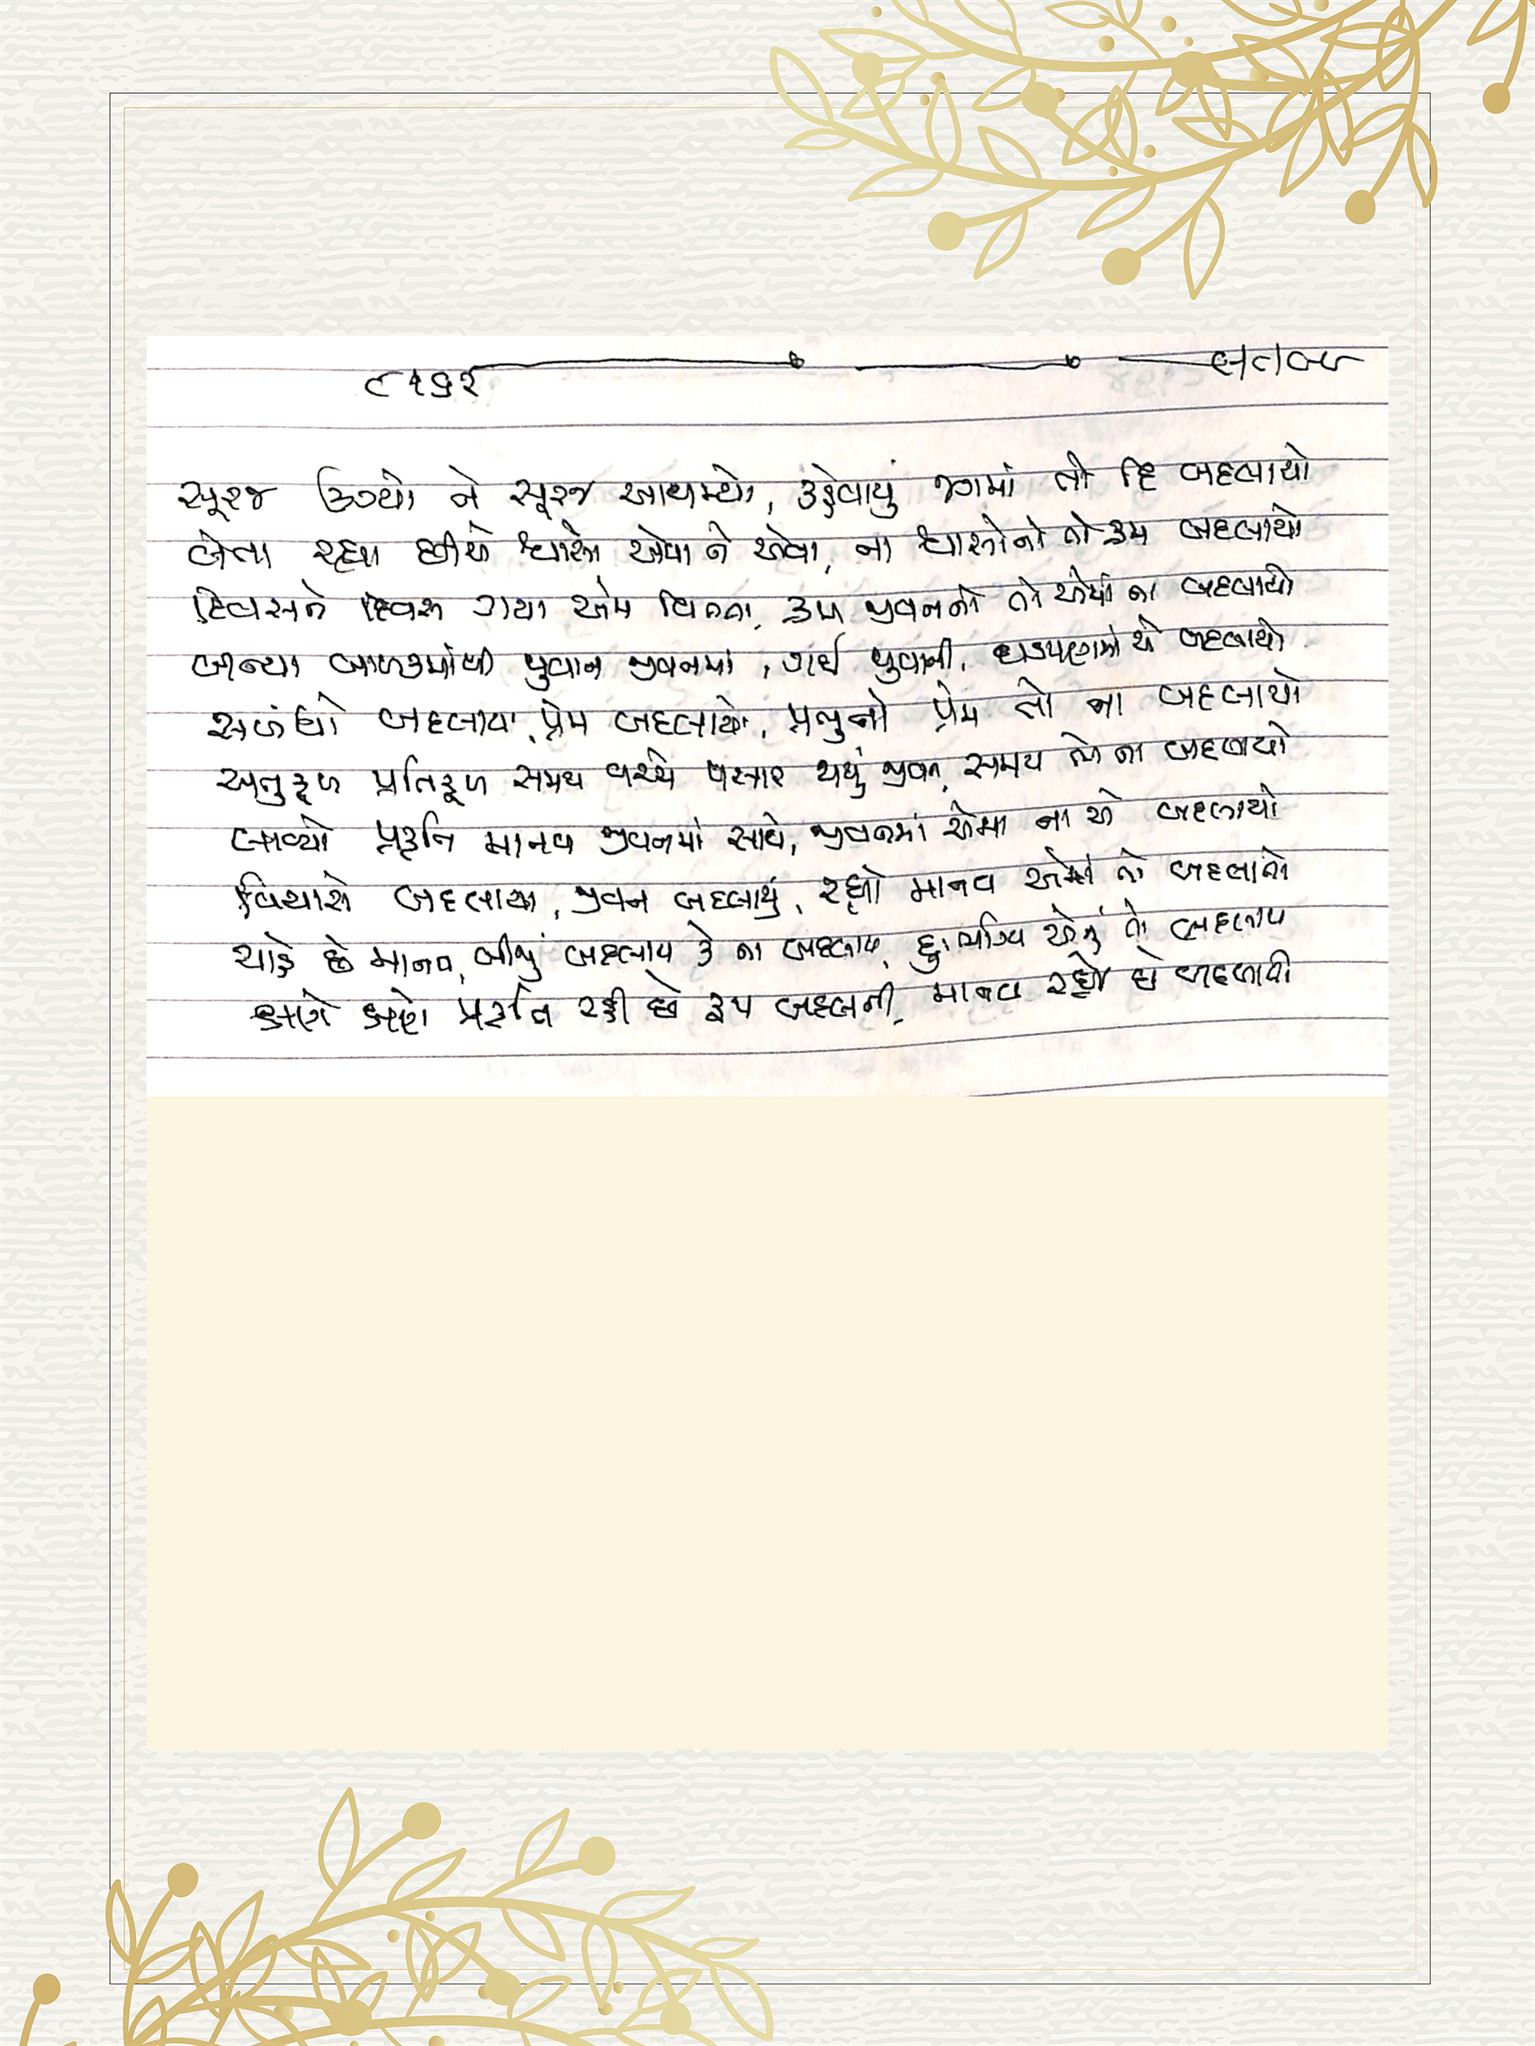 ૯૧૬૨
સૂરજ ઊગ્યો ને સૂરજ આથમ્યો, કહેવાયું જગમાં તો દિ બદલાયો
લેતા રહ્યા છીએ શ્વાસો એવા ને એવા, ના શ્વાસોનો તો ક્રમ બદલાયો
દિવસને દિવસ ગયા એમ વિતતા, ક્રમ જીવનનો તો એમાં ના બદલાયો
બન્યા બાળકમાંથી યુવાન જીવનમાં, ગઈ યુવાની, ઘડપણમાં એ બદલાયો
સબંધો બદલાયા, પ્રેમ બદલાયો, પ્રભુનો પ્રેમ તો ના બદલાયો
અનુકૂળ પ્રતિકૂળ સમય વચ્ચે પસાર થયું જીવન, સમય તો ના બદલાયો
લાવ્યો પ્રકૃતિ માનવ જીવનમાં સાથે, જીવનમાં એમાં ના એ બદલાયો
વિચારો બદલાયા, જીવન બદલાયું, રહ્યો માનવ એમાં તો બદલાતો
ચાહે છે માનવ, બીજું બદલાય કે ના બદલાય, દુઃર્ભાગ્ય એનું તો બદલાય
ક્ષણે ક્ષણે પ્રકૃતિ રહી છે રૂપ બદલતી, માનવ રહ્યો છે બદલાતો